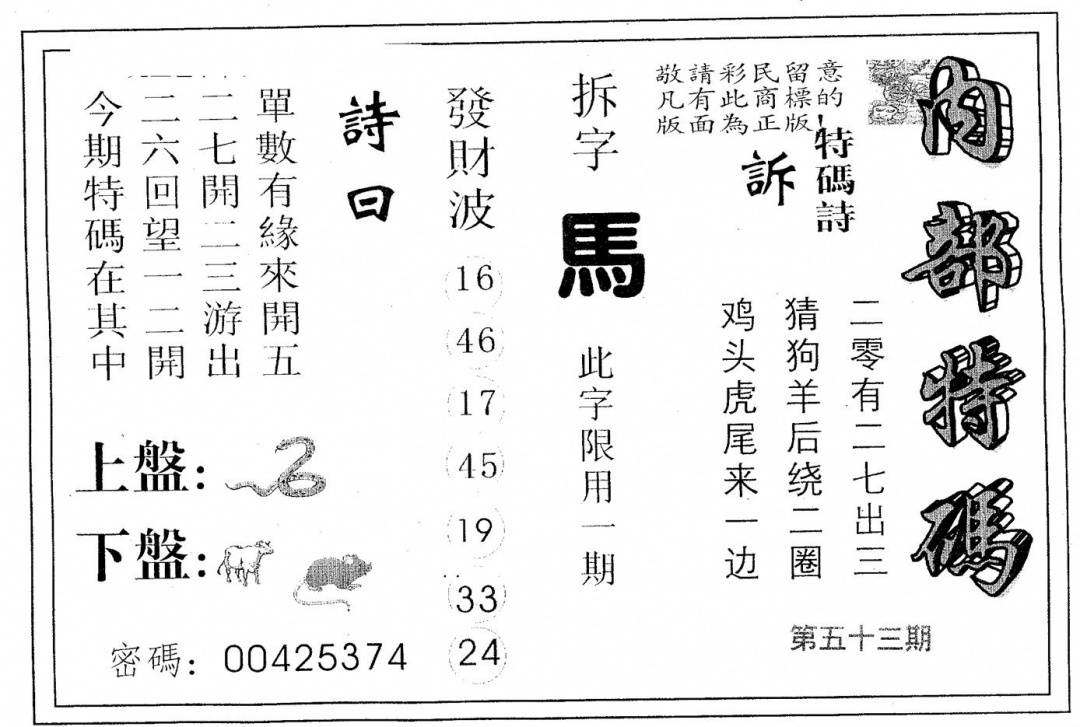 内部特碼
第五十三期
敬請彩民留意
凡有此商標的
版面為正版
特碼詩
訴
二零有二七出三
猜狗羊后绕二圈
鸡头虎尾来一边
拆字
馬
此字限用一期
發財波
16
46
17
45
19
33
24
詩曰
單數有緣來開五
二七開二三游出
二六回望一二開
今期特碼在其中
上盤：
下盤：
密碼：00425374